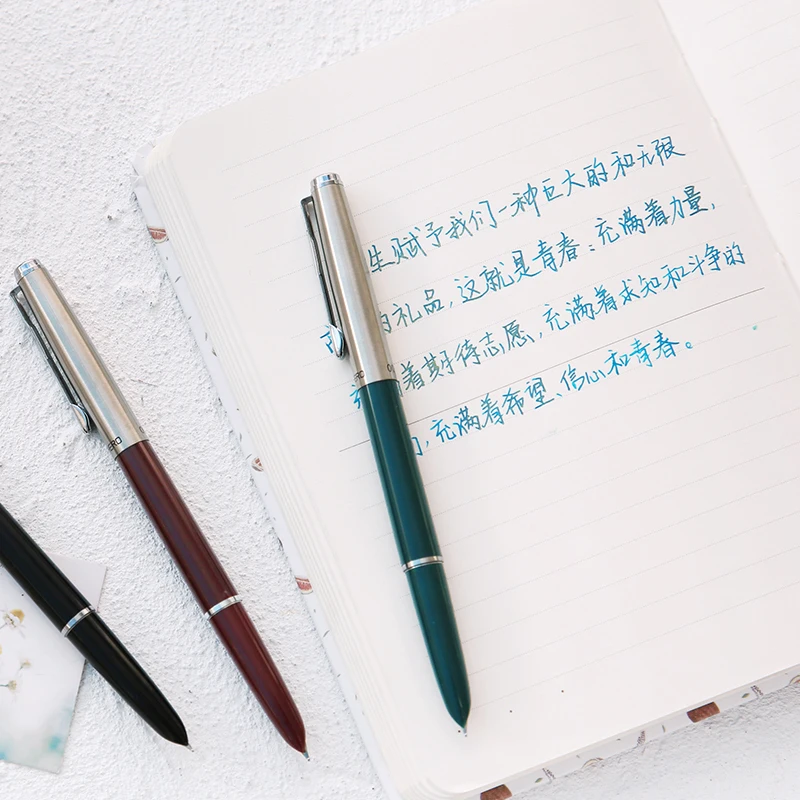 生赋予我们一种巨大的和无限
的礼品,这就是青春:充满着力量,
着期待志愿,充满着求知和斗争的
,充满着希望、信心和青春。
ERO